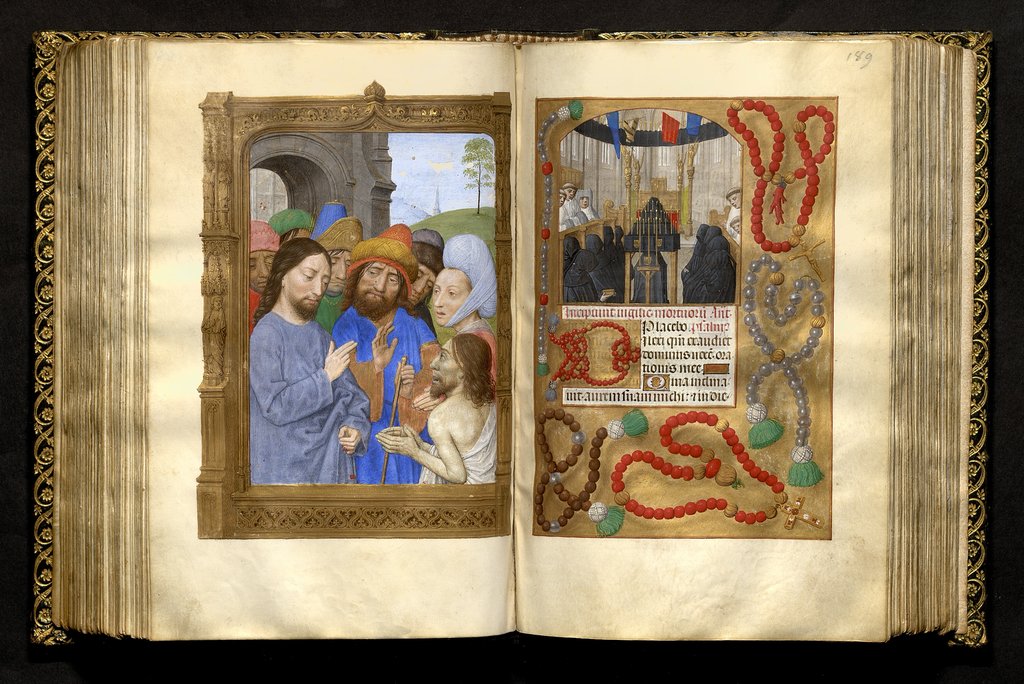 189
Incipiunt vigilie mortuorū Ant
Placebo. psalmꝰ
ilexi qm̄ exaudiet
dominus vocē ora
tionis mee
Quia inclina
uit aurem suam michi: ⁊ in die